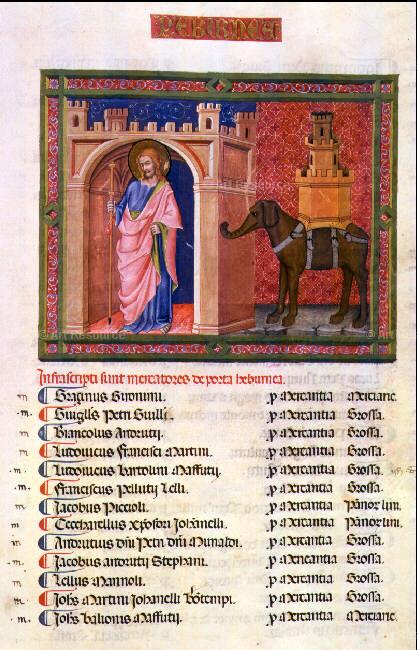 P EBURNEA
Infrascripti sunt mercatores de porta heburnea.
m Gracinus Simonini. p Mercantia Merciarie.
m. Guiglls Petri Guilli. p Mercantia Grossa.
m Biancolus Andrutij. p Mercantia Grossa.
m Ludouicus Francisci Martini. p Mercantia Grossa.
m. Ludouicus Bartolini Maffutij. p Mercantia Grossa.
m. Franciscus Pellutij Lelli. p Mercantia Grossa.
m Jacobus Piccioli. p Mercantia
m Ceccharellus xpofori Johanelli. p Mercantia
m Andrutius dni Petri dni p Mercantia Grossa.
m. Jacobus andrutij Stephani. p Mercantia Grossa.
m Lellus Mannoli. p Mercantia Grossa.
m Johs Martini Johanelli p Mercantia Grossa.
m. Johs Balionis Maffutij. p Mercantia Merciarie.